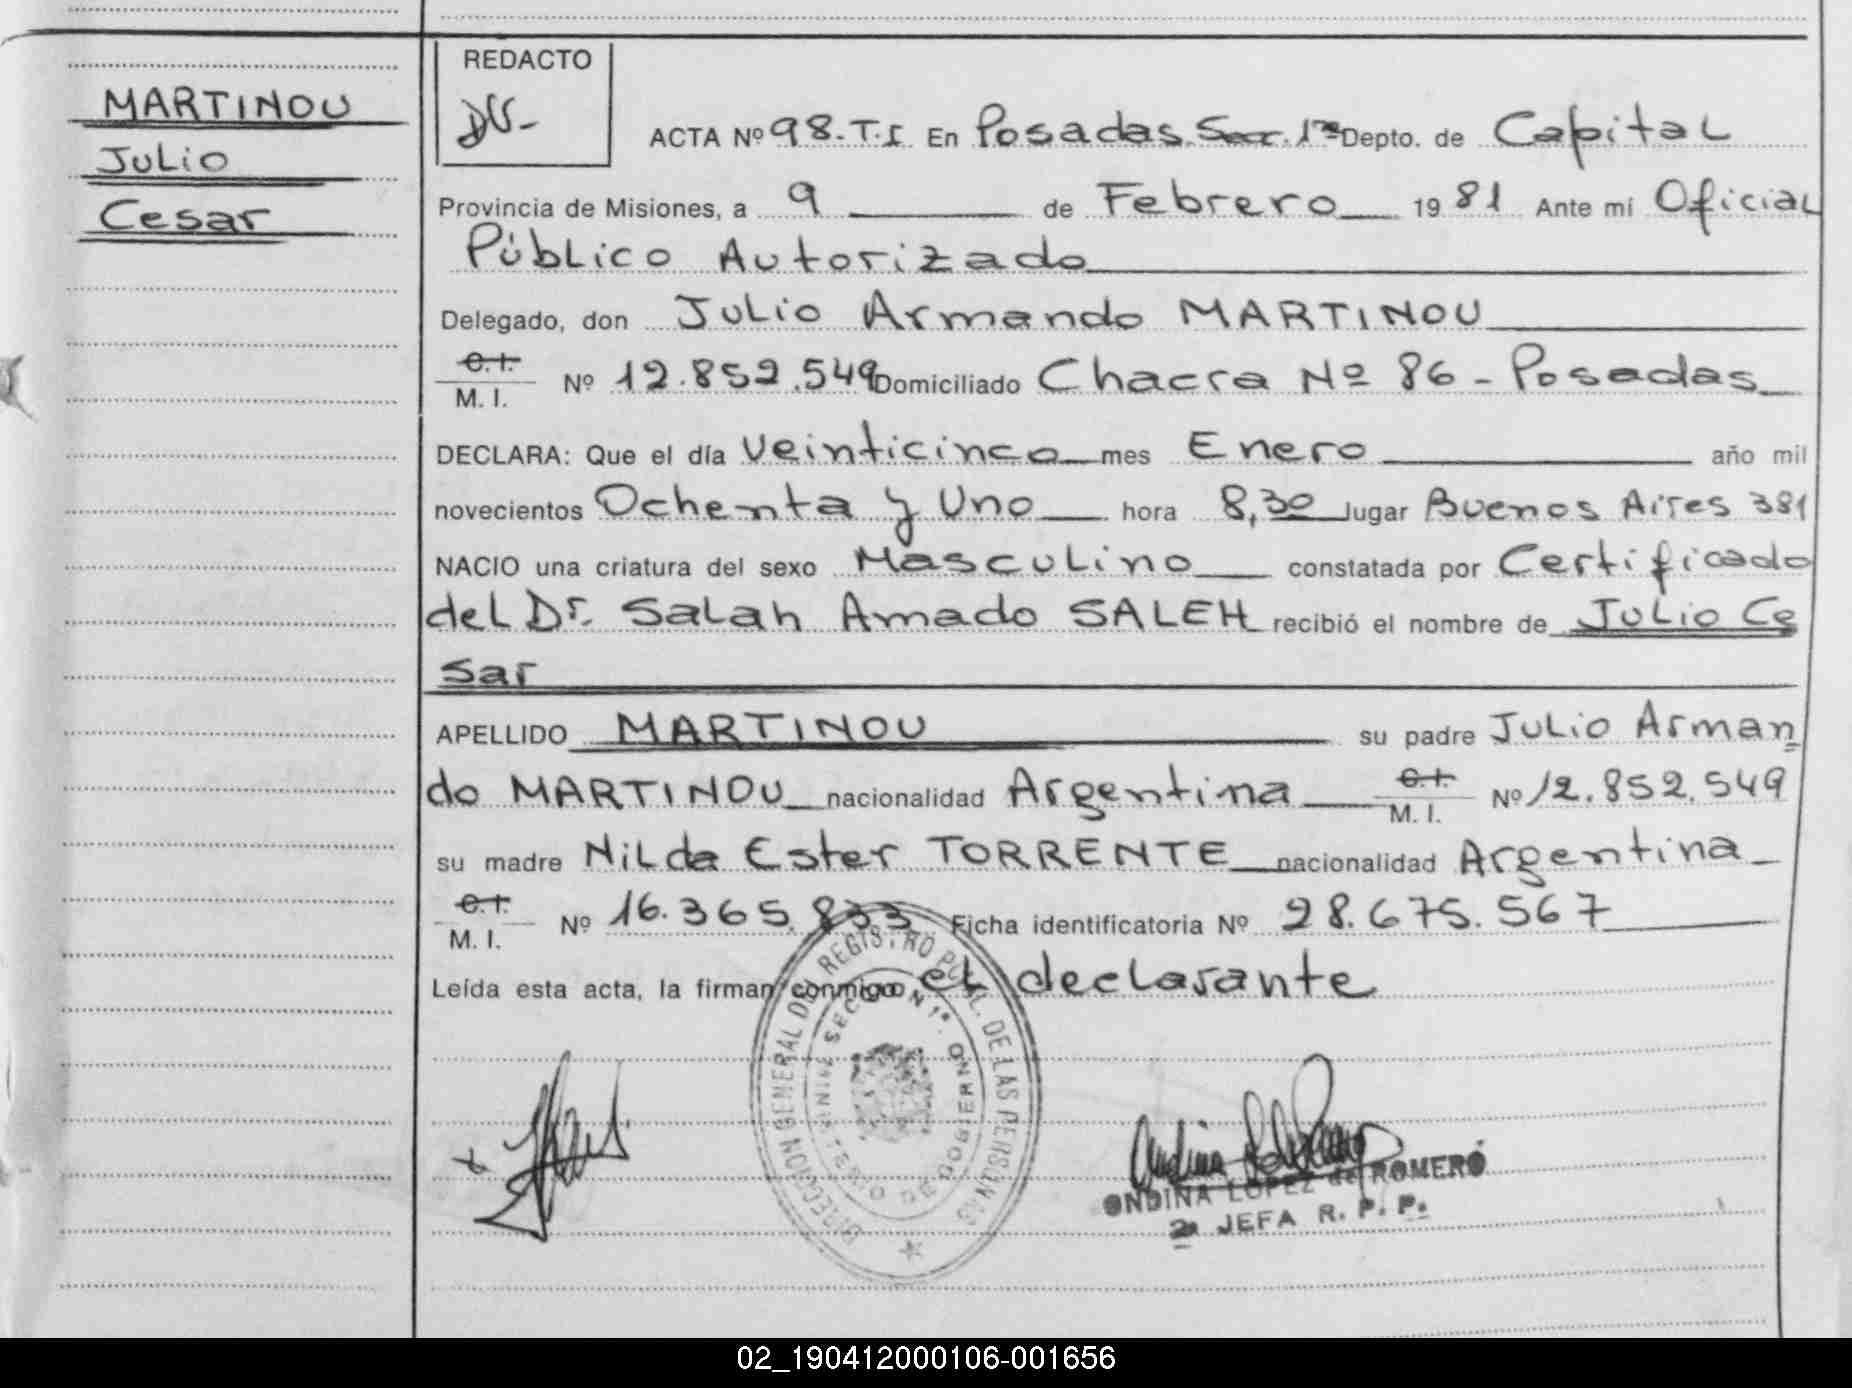 MARTINOU
Julio
Cesar
REDACTO
ACTA Nº 98.T.I. En Posadas.Secc.1ra Depto. de Capital
Provincia de Misiones, a 9 de Febrero 1981 Ante mí Oficial
Público Autorizado
Delegado, don Julio Armando MARTINOU
C.I.
M. I. Nº 12.852.549 Domiciliado Chacra Nº 86 - Posadas
DECLARA: Que el día veinticinco mes Enero año mil
novecientos Ochenta y Uno hora 8,30 lugar Buenos Aires 381
NACIO una criatura del sexo Masculino constatada por Certificado
del Dr. Salah Amado SALEH recibió el nombre de Julio Ce
sar
APELLIDO MARTINOU su padre Julio Arman
do MARTINOU nacionalidad Argentina C.I. M. I. Nº 12.852.549
su madre Nilda Ester TORRENTE nacionalidad Argentina
C.I.
M. I. Nº 16.365.833 Ficha identificatoria Nº 28.675.567
Leída esta acta, la firman conmigo el declarante
DIRECCION GENERAL DEL REGISTRO PCIAL. DE LAS PERSONAS
SECCION 1ª.
MINISTERIO DE GOBIERNO
ONDINA LOPEZ de ROMERO
2a JEFA R. P. P.
02_190412000106-001656